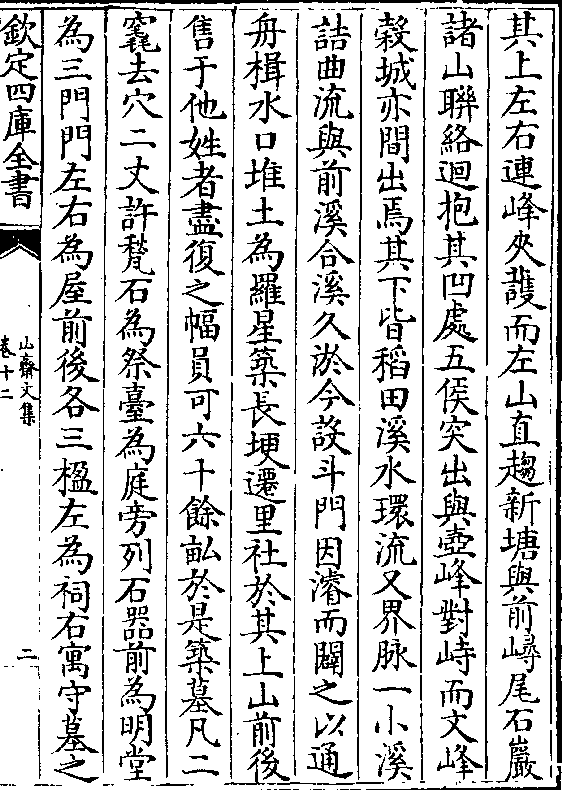 其上左右連峰夾䕶而左山直趨新塘與前嶹尾石巖
諸山聯絡迴抱其凹處五侯突出與壺峰對峙而文峰
榖城亦間出焉其下皆稻田溪水環流又界脉一小溪
詰曲流與前溪合溪久淤今設斗門因濬而闢之以通
舟楫水口堆土為羅星築長埂遷里社於其上山前後
售于他姓者盡復之幅員可六十餘畝於是築墓凡二
窀去穴二丈許甃石為祭臺為庭旁列石器前為明堂
為三門門左右為屋前後各三楹左為祠右寓守墓之
欽定四庫全書
山齋文集
卷十二
二